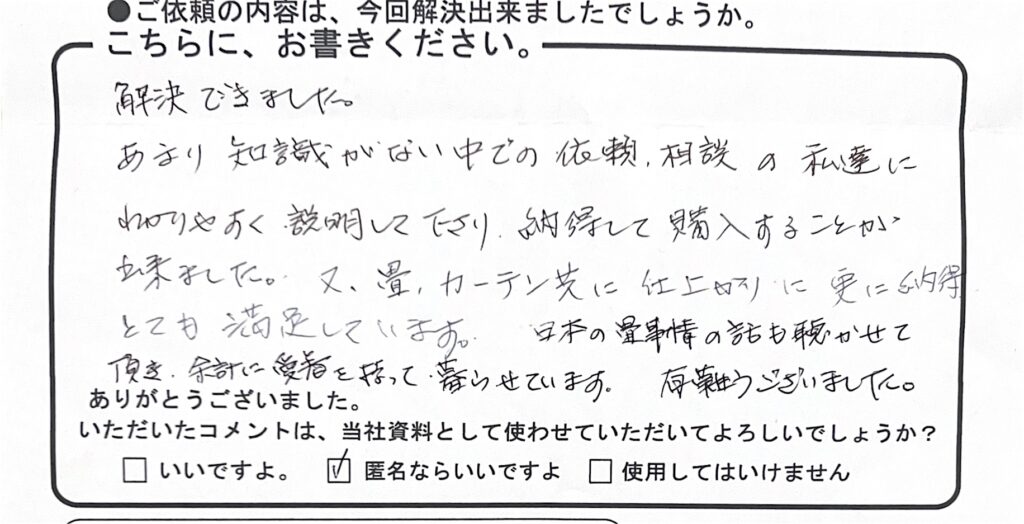 ●ご依頼の内容は、今回解決出来ましたでしょうか。
こちらに、お書きください。
解決できました。
あまり知識がない中での依頼、相談の私達に
わかりやすく説明して下さり、納得して購入することが
出来ました。又、畳、カーテン共に仕上がりに更に納得
とても満足しています。日本の畳事情の話も聴かせて
頂き、余計に愛着を持って暮らせています。有難うございました。
ありがとうございました。
いただいたコメントは、当社資料として使わせていただいてよろしいでしょうか？
□ いいですよ。 ☑ 匿名ならいいですよ □ 使用してはいけません